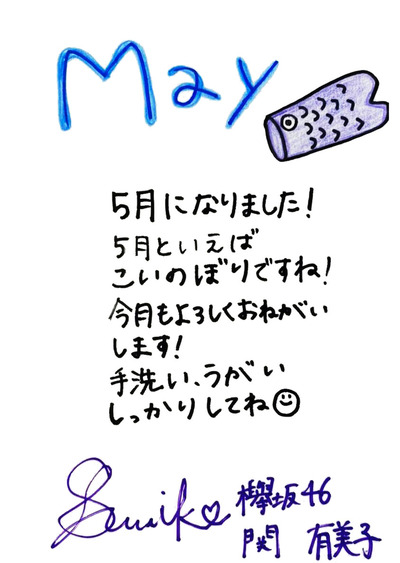 May
5月になりました!
5月といえば
こいのぼりですね!
今月もよろしくおねがい
します!
手洗い、うがい
しっかりしてね
欅坂46
関 有美子